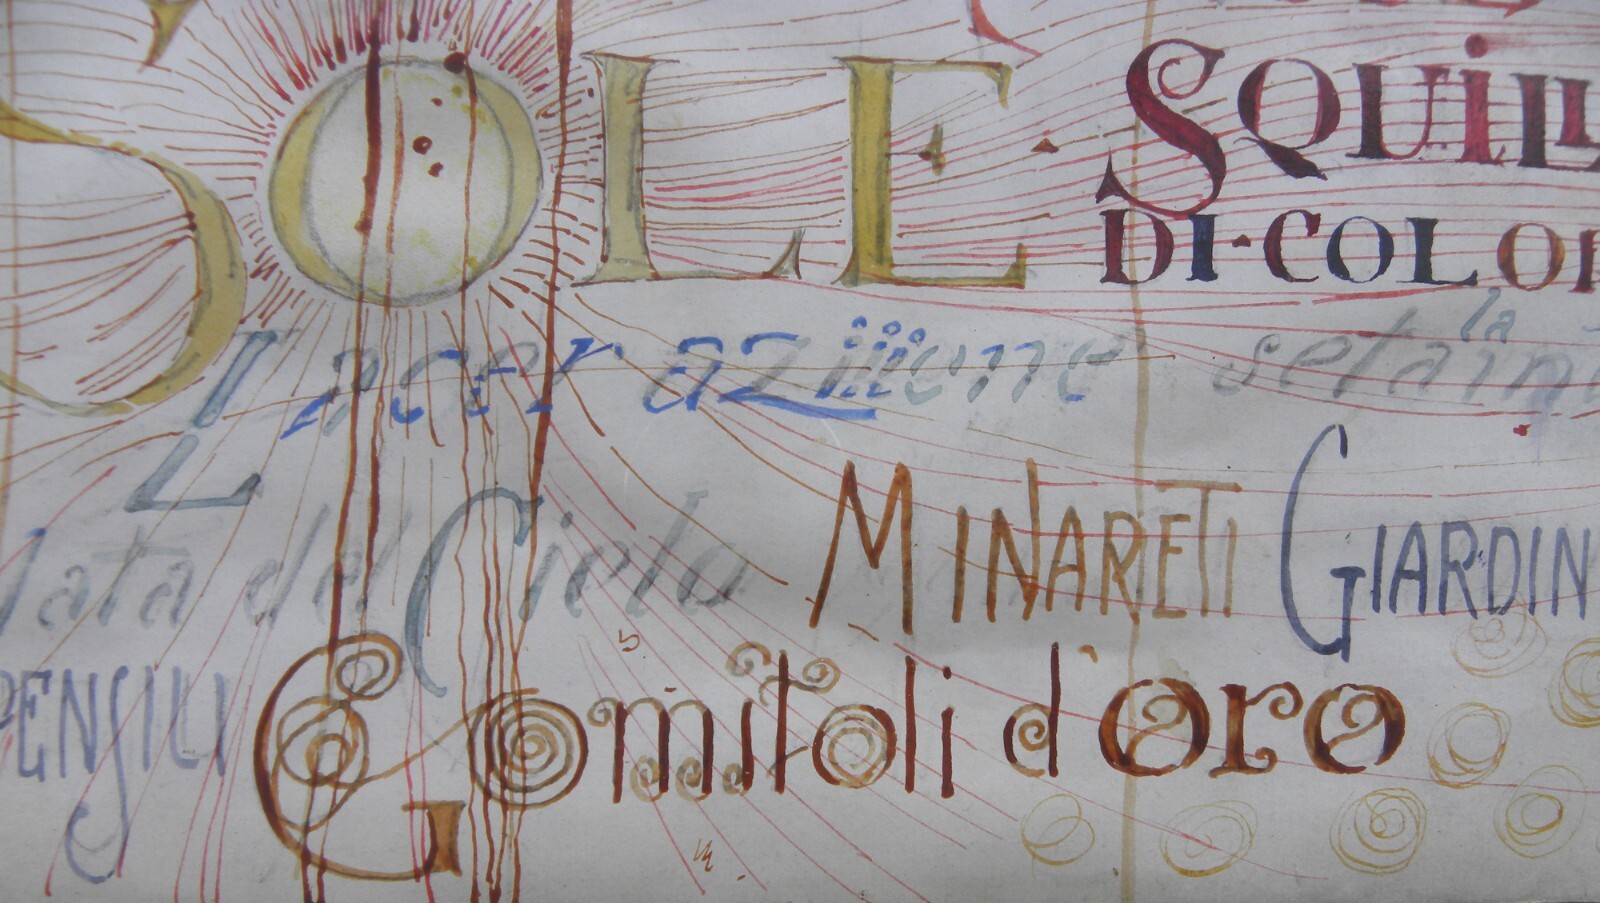 SOLE · SQUILL
DI·COLOR
Laceraziiione setaina
la
L
lata del Cielo MINARETI GIARDIN
PENSILI Gomitoli d'oro